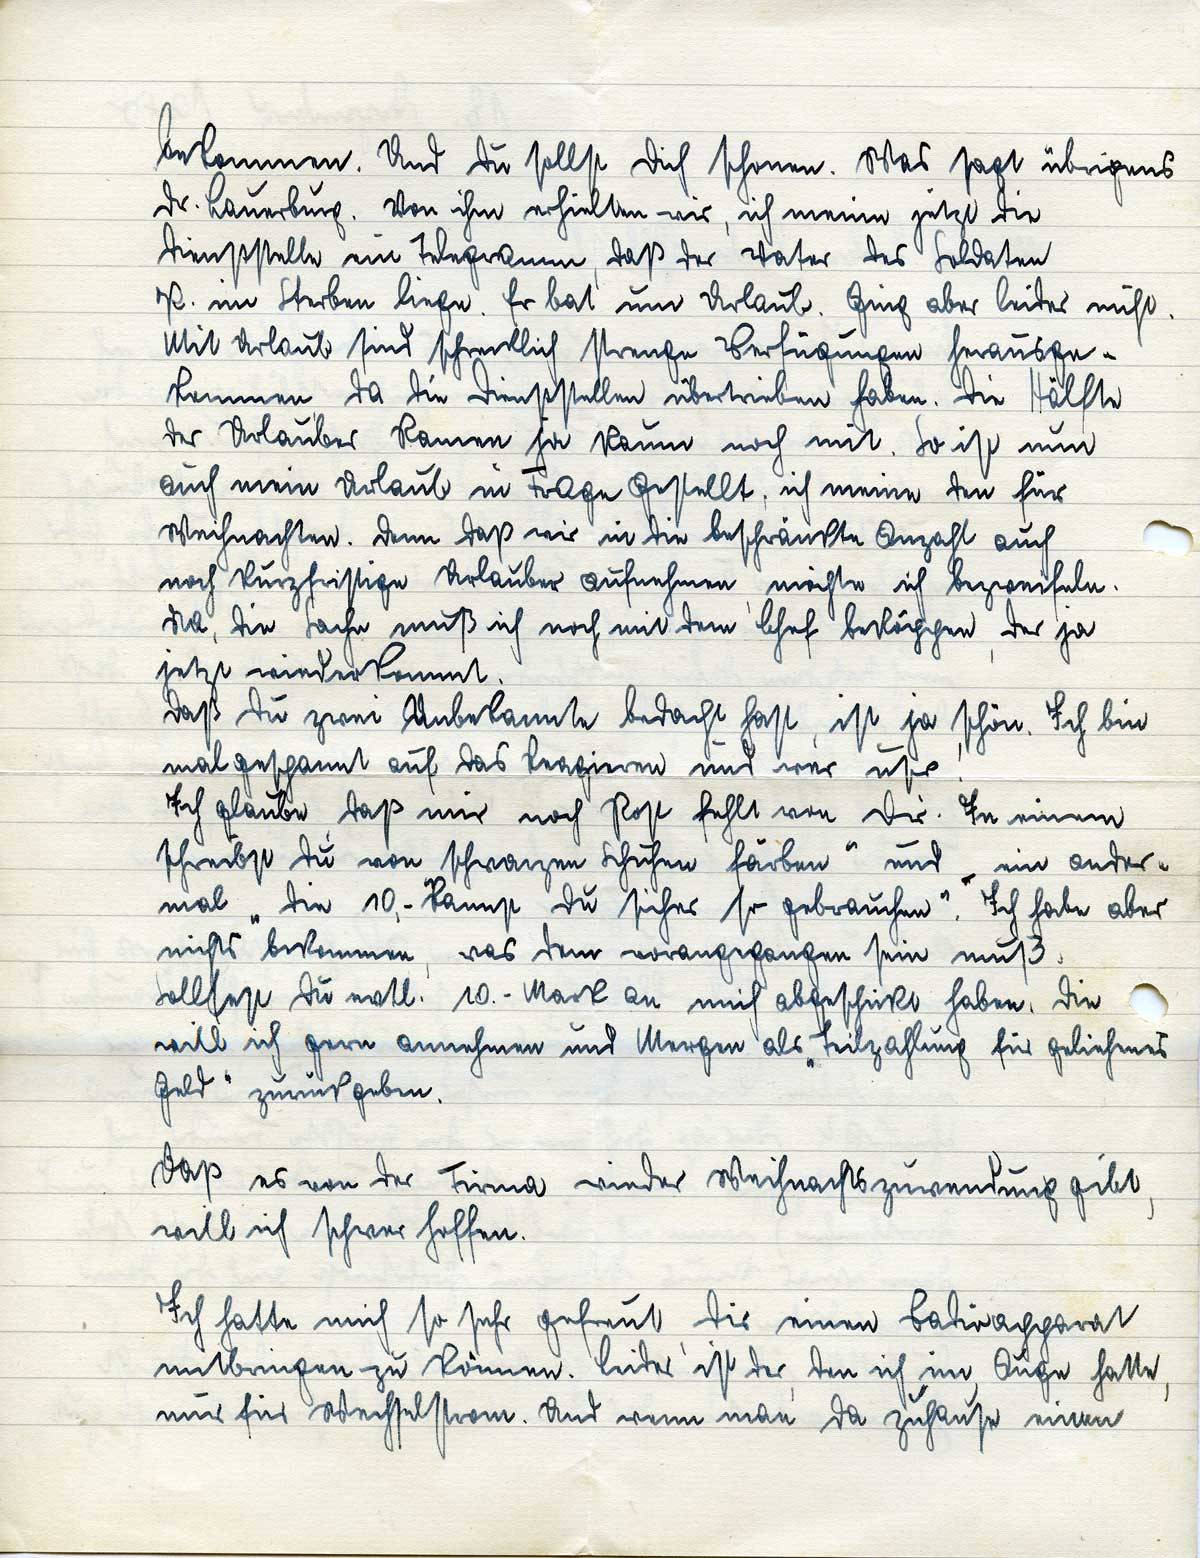 bekommen. Und Du sollst Dich schonen. Was sagt übrigens
Dr. Lauerburg. Von ihm erhielten wir, ich meine jetzt die
Dienststelle ein Telegramm, daß der Vater des Soldaten
P. im Sterben liege. Er bat um Urlaub. Ging aber leider nicht.
Mit Urlaub sind schrecklich strenge Verfügungen herausge-
kommen, da die Dienststellen übertrieben haben. Die Hälfte
der Urlauber kamen ja kaum noch mit. So ist nun
auch mein Urlaub in Frage gestellt, ich meine den für
Weihnachten. Denn daß wir in die beschränkte Anzahl auch
noch kurzfristige Urlauber aufnehmen, möchte ich bezweifeln.
Na, die Sache muß ich noch mit dem Chef beköppen, der ja
jetzt wiederkommt.
Daß Du zwei Unbekannte bedacht hast, ist ja schön. Ich bin
mal gespannt auf das Reagieren und wer usw!
Ich glaube, daß mir noch Post fehlt von Dir. In einem
schreibst Du von "schwarzen Schuhen färben" und ein ander-
mal "die 10,- kannst Du sicher so gebrauchen". Ich habe aber
nichts bekommen, was dem vorangegangen sein muß.
Solltest Du evtl. 10.- Mark an mich abgeschickt haben. Die
will ich gern annehmen und Mergen als "Teilzahlung für geliehenes
Geld" zurückgeben.
Daß es von der Firma wieder Weihnachtszuwendung gibt,
will ich schwer hoffen.
Ich hatte mich so sehr gefreut, Dir einen Radioapparat
mitbringen zu können. Leider ist der, den ich im Auge hatte,
nur für Wechselstrom. Und wenn man da zuhause einen